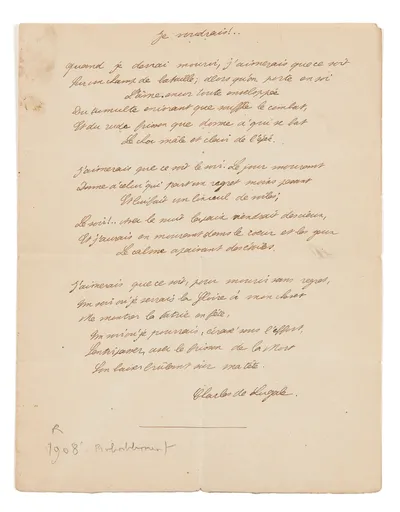 Je voudrais!..
Quand je devrai mourir, j'aimerais que ce soit
Sur un champ de bataille; alors qu'on porte en soi
L'âme encor toute enveloppée
Du tumulte enivrant que souffle le combat,
Et du rude frisson que donne à qui se bat
Le choc mâle et clair de l'épée.
J'aimerais que ce soit le soir. Le jour mourant
Donne à celui qui part un regret moins pesant
Et lui fait un linceul de voiles;
Le soir!.. Avec la nuit la paix viendrait des cieux,
Et j'aurais en mourant dans le cœur et les yeux
Le calme apaisant des étoiles.
J'aimerais que ce soit, pour mourir sans regret,
Un soir où je verrais la Gloire à mon chevet
Me montrer la Patrie en fête,
Un soir où je pourrais, écrasé sous l'effort,
Sentir passer, avec le frisson de la Mort
Son baiser brûlant sur ma tête.
Charles de Lugale.
1908 Probablement